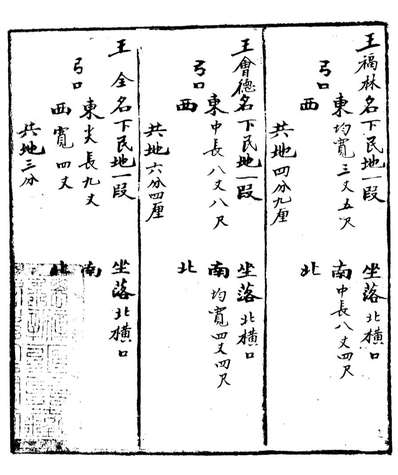 王福林名下民地一段 坐落北橫口
弓口
東均寬三丈五尺 南中長八丈四尺
西 北
共地四分九厘
王會德名下民地一段 坐落北橫口
弓口
東中長八丈八尺 南均寬四丈四尺
西 北
共地六分四厘
王全名下民地一段 坐落北橫口
弓口
東尖長九丈 南
西寬四丈 北
共地三分